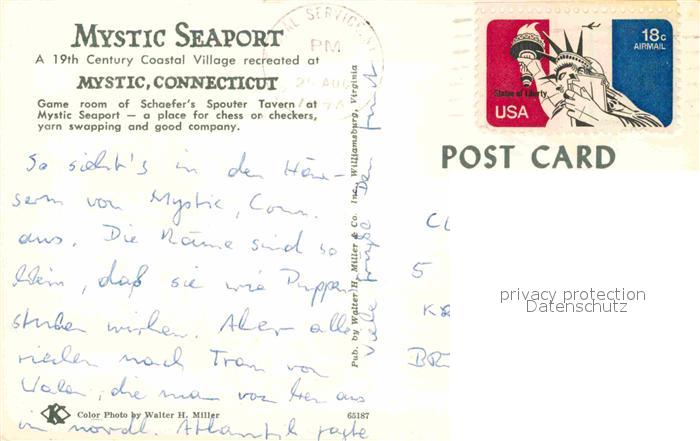 MYSTIC SEAPORT
A 19th Century Coastal Village recreated at
MYSTIC, CONNECTICUT
Game room of Schaefer's Spouter Tavern at
Mystic Seaport — a place for chess or checkers,
yarn swapping and good company.
So sieht's in den Häu-
sern von Mystic, Conn.
aus. Die Räume sind so
klein, daß sie wie Puppen
stuben wirken. Aber alle
riechen nach Tran von
Walen, die man von hier aus
im nördl. Atlantik jagte
Viele Grüße
K
Color Photo by Walter H. Miller
65187
Pub. by Walter H. Miller & Co. Inc. Williamsburg, Virginia
PM
18c
AIRMAIL
Statue of Liberty
USA
POST CARD
CL
5
BR
privacy protection
Datenschutz